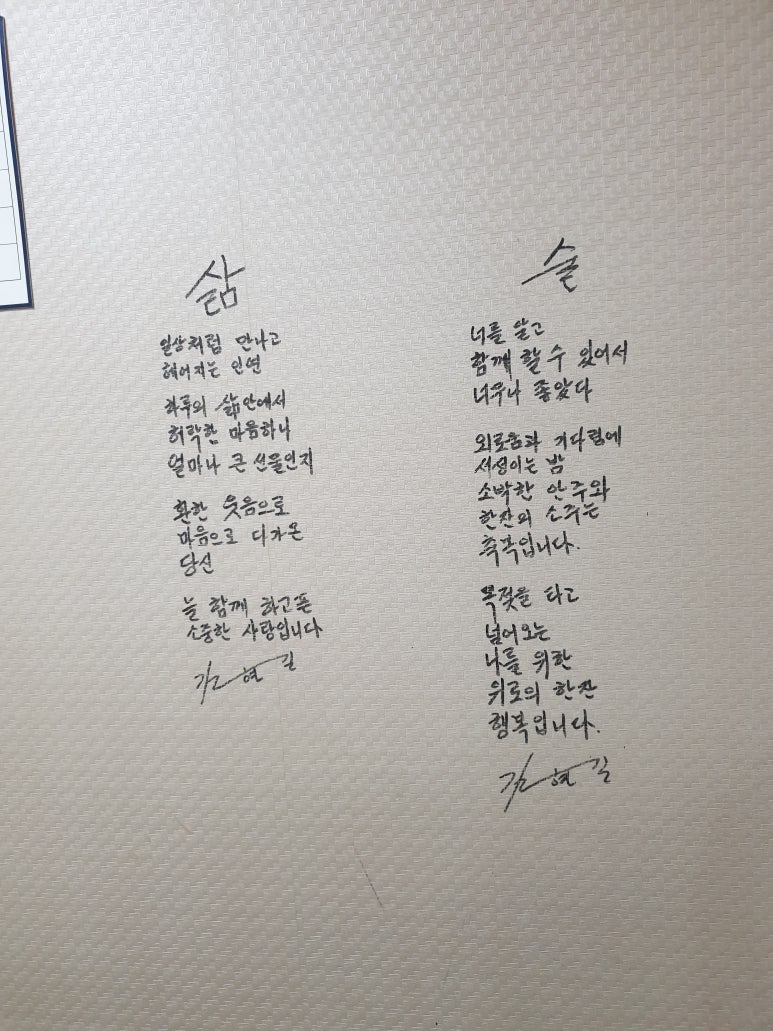 삶
일상처럼 만나고
헤어지는 인연
하루의 삶안에서
허락한 마음하나
얼마나 큰 선물인지
환한 웃음으로
마음으로 다가온
당신
늘 함께 하고픈
소중한 사랑입니다
김현길
술
너를 알고
함께 할 수 있어서
너무나 좋았다
외로움과 기다림에
서성이는 밤
소박한 안주와
한잔의 소주는
축복입니다.
목젖을 타고
넘어오는
나를 위한
위로의 한잔
행복입니다.
김현길